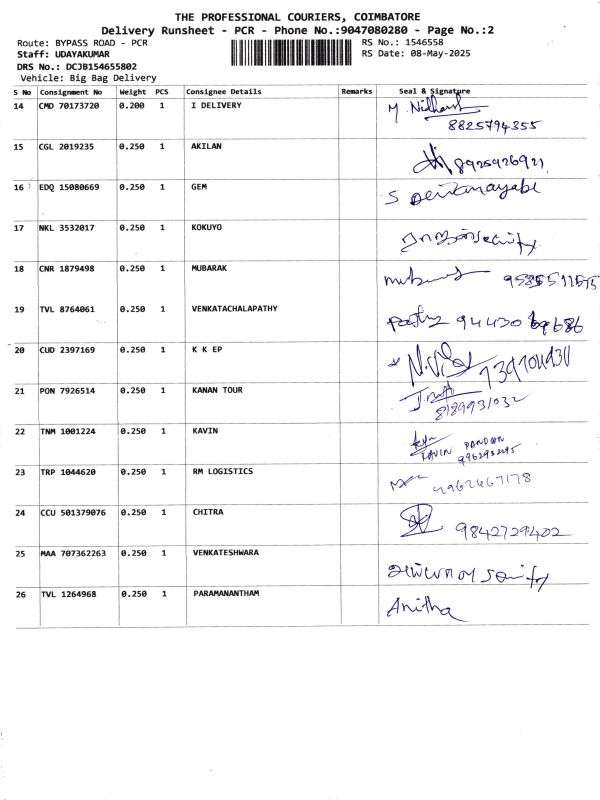 THE PROFESSIONAL COURIERS, COIMBATORE
Delivery Runsheet - PCR - Phone No.:9047080280 - Page No.:2
Route: BYPASS ROAD - PCR
Staff: UDAYAKUMAR
DRS No.: DCJB154655802
Vehicle: Big Bag Delivery
RS No.: 1546558
RS Date: 08-May-2025
S No Consignment No Weight PCS Consignee Details Remarks Seal & Signature
14 CMD 70173720 0.200 1 I DELIVERY M Nidharsh
8825794355
15 CGL 2019235 0.250 1 AKILAN 8925926921
16 EDQ 15080669 0.250 1 GEM S
17 NKL 3532017 0.250 1 KOKUYO
18 CNR 1879498 0.250 1 MUBARAK
19 TVL 8764061 0.250 1 VENKATACHALAPATHY
20 CUD 2397169 0.250 1 K K EP
21 PON 7926514 0.250 1 KANAN TOUR
8189931032
22 TNM 1001224 0.250 1 KAVIN
KAVIN PANDIAN
9962932095
23 TRP 1044620 0.250 1 RM LOGISTICS 9962467178
24 CCU 501379076 0.250 1 CHITRA 9842729402
25 MAA 707362263 0.250 1 VENKATESHWARA
26 TVL 1264968 0.250 1 PARAMANANTHAM Anitha